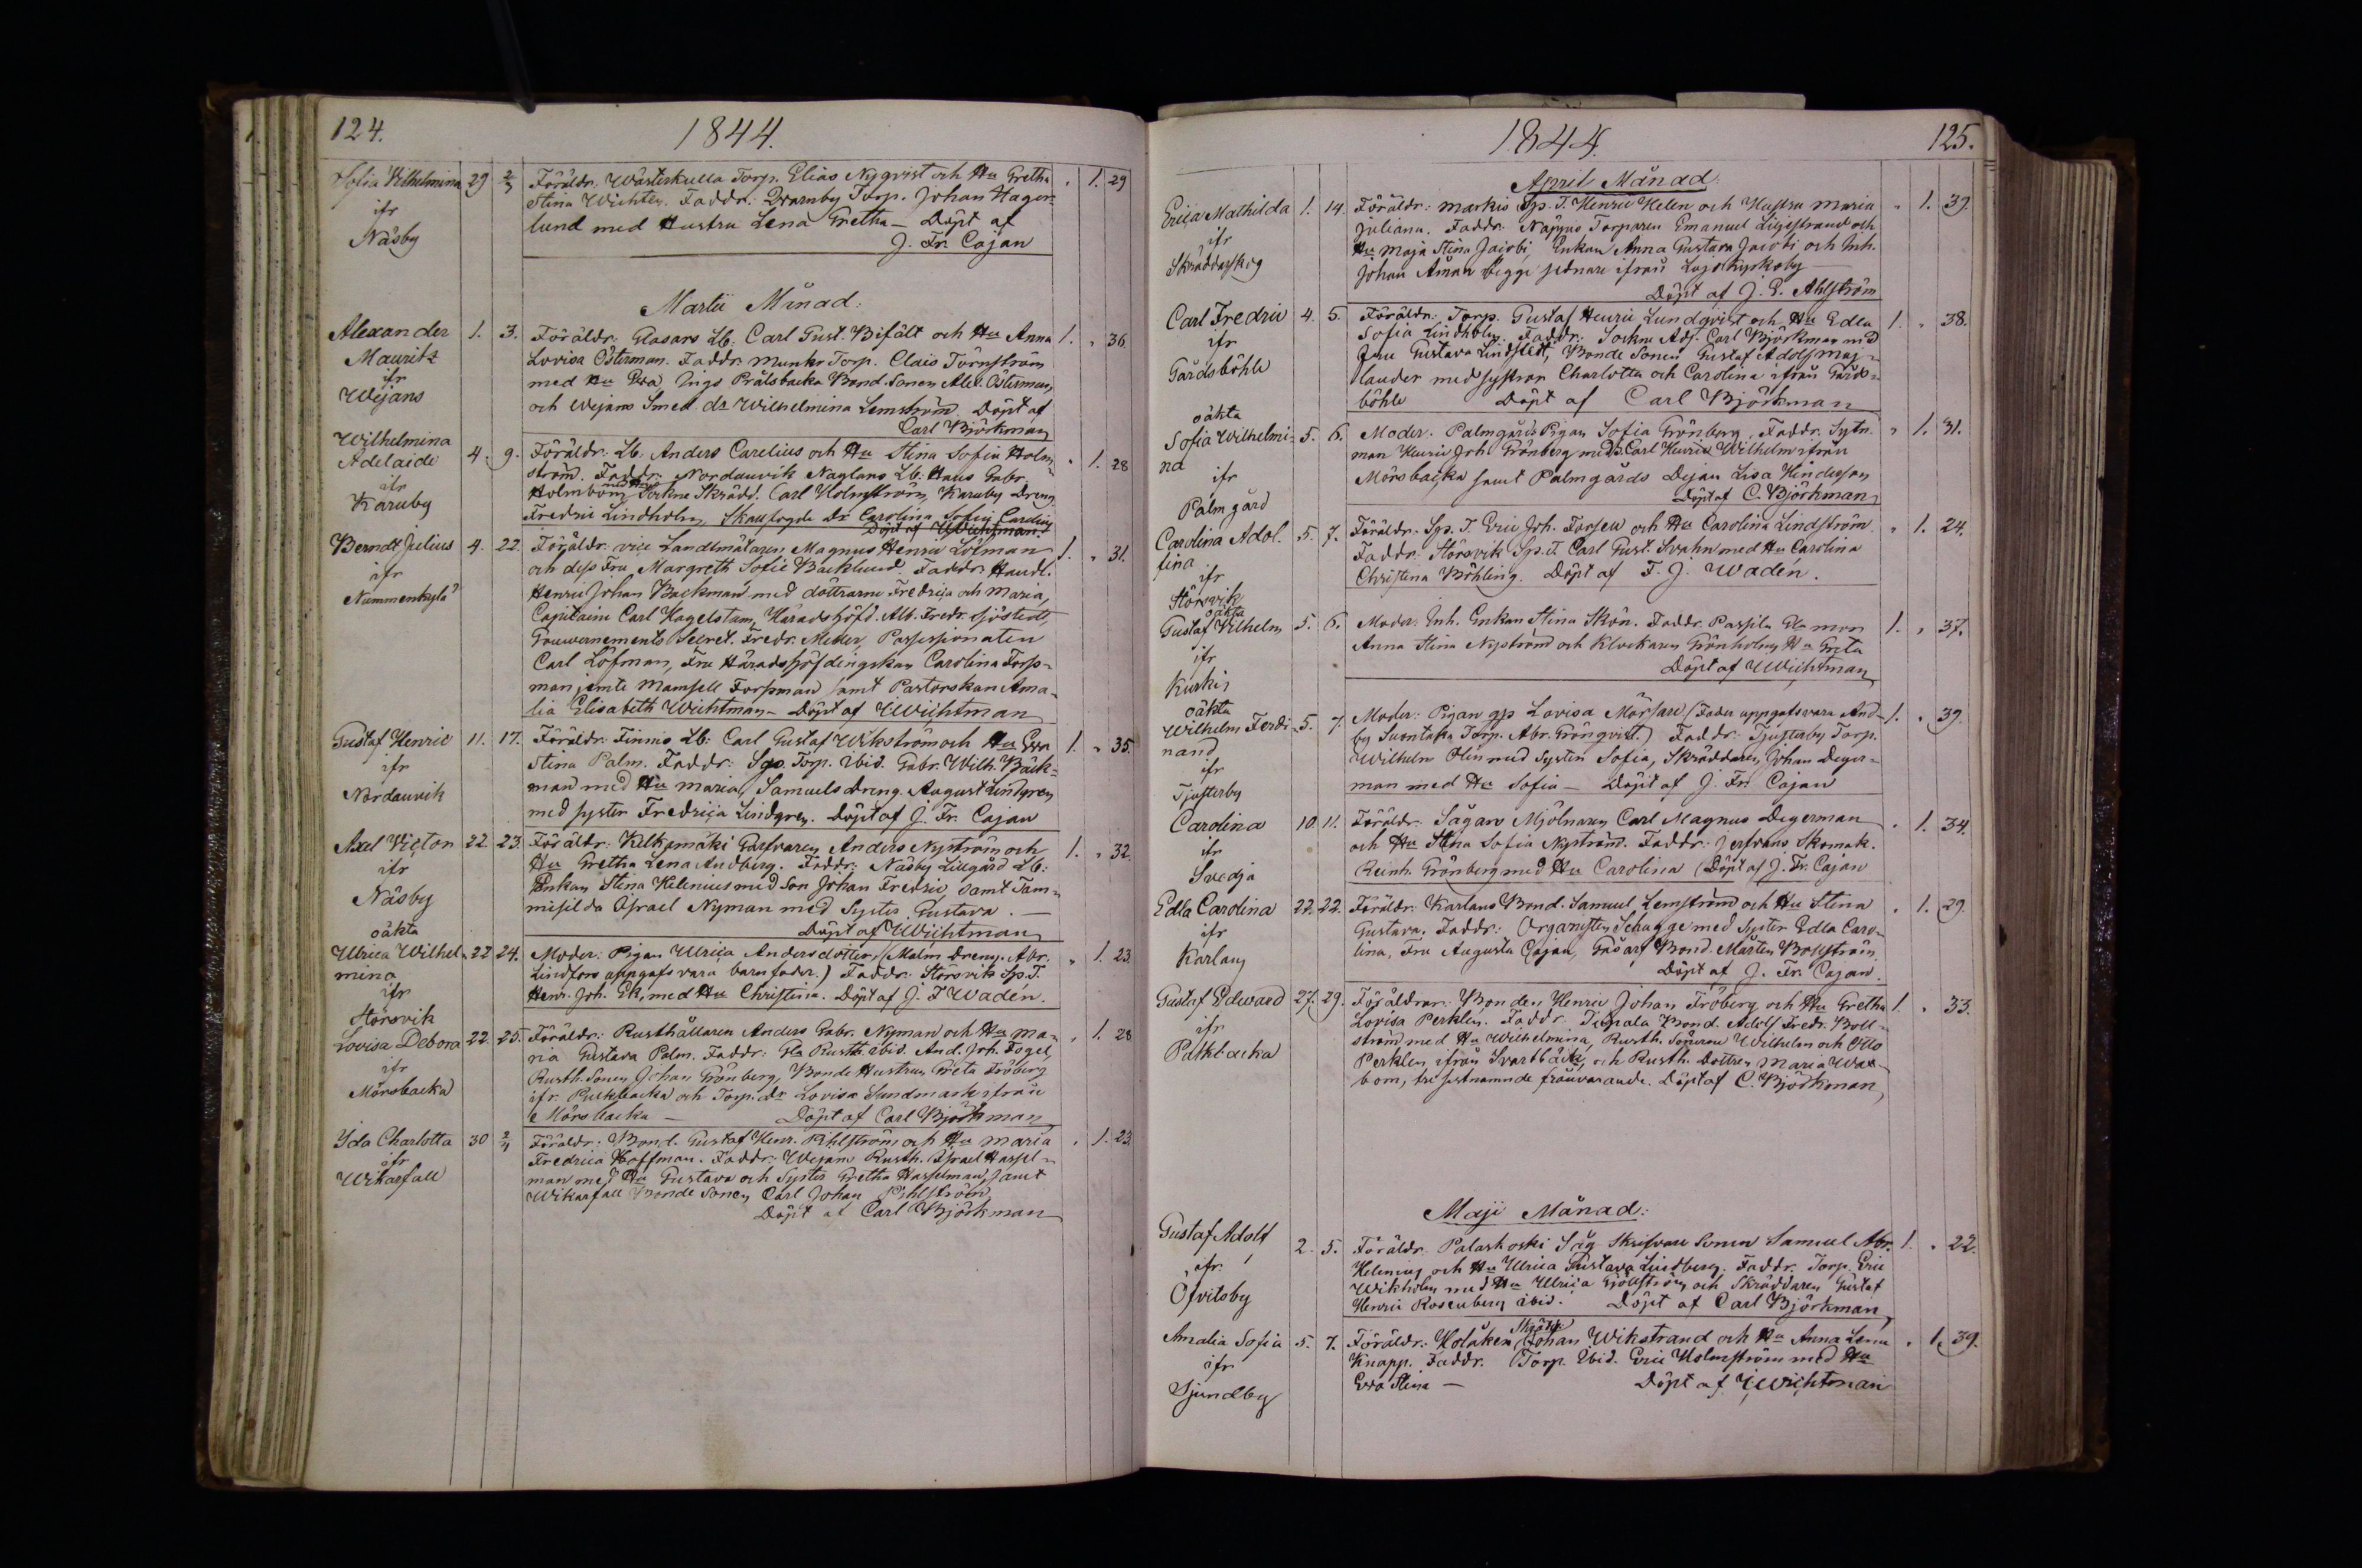 124.
1844.
Sofia Wilhelmina 29 2/3 Föräldr: Wästerkulla Torp. Elias Nyqvist och Hu Gretha " 1. 29
ifr Stina Wichter. Faddr: Qvarnby Torp. Johan Hager-
Näsby lund med Hustru Lena Gretha — Döpt af
J. Fr. Cajan
Martii Månad:
Alexander 1. 3. Föräldr. Glasars Lb: Carl Gust. Bifält och Hu Anna 1. " 36
Mauritz Lovisa Österman. Faddr. Munks Torp. Claës Törnström
ifr med Hu Eva, Ings Prälsbacka Bond. Sonen Alex. Österman,
Wejans och Wejans Smed. dr Wilhelmina Lemström. Döpt af
Carl Björkman
Wilhelmina
Adelaide 4. 9. Föräldr: Lb. Anders Carelius och Hu Stina Sofia Holm- " 1. 28
ifr ström. Faddr. Nordanvik Naglans Lb. Hans Gabr.
Karuby Holmbom, Sockne Skrädd. Carl Holmström, Karuby Dreng
Fredric Lindholm, Dr Carolina Sofia
Döpt af Wichtman.
Berndt Julius 4. 22. Föräldr. vice Landtmätaren Magnus Henric Löfman 1. " 31.
ifr och dess Fru Margreth Sofie Backlund. Faddr: Handl.
Nummenkylä Henric Johan Backman med döttrarne Fredrica och Maria,
Capitaine Carl Hagelstam, Häradshöfd. Alb. Fredr. Sjöstedt,
Gouvernements Secret. Fredr. Meder, Possessionaten
Carl Löfman, Fru Häradshöfdingskan Carolina Forss-
man jemte Mamsell Forssman samt Pastorskan Ama-
lia Elisabeth Wichtman — Döpt af Wichtman
Gustaf Henric 11. 17. Föräldr: Finnis Lb: Carl Gustaf Wikström och Hu Eva 1. " 35.
ifr Stina Palm. Faddr: Sgs. Torp. ibid. Gabr. Wilh. Bäck-
Nordanvik man med Hu Maria, Samuels Dreng August Lindgren
med syster Fredrica Lindgren. Döpt af J. Fr. Cajan
Axel Victor 22. 23. Föräldr: Kelkamäki Garfvaren Anders Nyström och 1. " 32.
ifr Hu Gretha Lena Andberg. Faddr: Näsby Lillgård Lb:
Näsby Enkan Stina Helenius med Son Johan Fredric samt Tam-
misilda Israel Nyman med Syster Gustava. —
Döpt af Wichtman
oäkta
Ulrica Wilhel- 22 24. Moder: Pigan Ulrica Andersdotter, (Malm Dreng. Abr. " 1. 23.
mina Lindfors uppgifs vara barnfader.) Faddr: Störsvik Sp. T.
ifr Henr. Joh. Ek, med Hu Christina. Döpt af J. F Wadén.
Störsvik
Lovisa Debora 22. 25. Föräldr: Rusthållaren Anders Gabr. Nyman och Hu Ma- " 1. 28
ifr ria Gustava Palm. Faddr: Gla Rusth. ibid. And. Joh. Fogel,
Mörsbacka Rusth. Sonen Johan Grönberg, Bonde Hustrun Greta Fröberg
ifr. Pickbacka och Torp. dr Lovisa Sundmark ifrån
Mörsbacka — Döpt af Carl Björkman
Ida Charlotta 30 2/4 Föräldr: Bond. Gustaf Henr. Pihlström och Hu Maria " 1. 23.
ifr Fredrica Hoffman. Faddr: Wejans Rusth. Israel Hassel-
Wikarfall man med Hu Gustava och Syster Gretha Hasselman, samt
Wikarfall Bonde Sonen Carl Johan Pihlström
Döpt af Carl Björkman
1844.
125.
April Månad:
Erica Mathilda 1. 14. Föräldr: Markis Sgs. T. Henric Helen och Hustru Maria " 1. 39.
ifr Juliana. Faddr. Näpnas Torparen Emanuel Liljestrand och
Skräddarskog Hu Maja Stina Jacobi, Enkan Anna Gustava Jacobi och Inh.
Johan Åman begge sednare ifrån Lojo Kyrkoby
Döpt af J. E. Ahlström
Carl Fredric 4. 5. Föräldr: Torp. Gustaf Henric Lundqvist och Hu Edla 1. " 38.
ifr Sofia Lindholm. Faddr: Sockne Adj. Carl Björkman med
Gårdsböhle Fru Gustava Lindstedt, Bonde Sonen Gustaf Adolf Maj-
lander med systrar Charlotta och Carolina ifrån Gårds-
böhle Döpt af Carl Björkman
oäkta
Sofia Wilhelmi- 5. 6. Moder. Palmgårds Pigan Sofia Grönberg. Faddr. Sytn. " 1. 31.
na man Henric Joh. Grönberg med S. Carl Henric Wilhelm ifrån
ifr Mörsbacka samt Palmgårds Dejan Lisa Hindersson
Palmgård Döpt af C. Björkman
Carolina Adol- 5. 7. Föräldr: Sgs. T. Eric Joh. Forsén och Hu Carolina Lindström " 1. 24.
fina Faddr: Störsvik Sp. T. Carl Gust. Svahn med Hu Carolina
ifr Christina Böhling. Döpt af F. J. Wadén.
Störsvik
oäkta
Gustaf Wilhelm 5. 6. Moder: Inh. Enkan Stina Skön. Faddr. Passila Gla mor 1. " 37.
ifr Anna Stina Nyström och Klockaren Grönholms Hu Greta
Kurkis Döpt af Wichtman
oäkta
Wilhelm Ferdi- 5. 7. Moder: Pigan Lovisa Mörsare (Fader uppgifs vara And- 1. " 39.
nand by Suontaka Torp. Abr. Grönqvist.) Faddr: Tjusterby Torp.
ifr Wilhelm Olin med Syster Sofia, Skräddaren Johan Deger-
Tjusterby man med Hu Sofia — Döpt af J. Fr. Cajan
Carolina 10. 11. Föräldr: Sågars Mjölnaren Carl Magnus Degerman " 1. 34.
ifr och Hu Stina Sofia Nyström. Faddr: Jerfvans Skomak.
Svedja Reinh. Grönberg med Hu Carolina (Döpt af J. Fr. Cajan
Edla Carolina 22. 22. Föräldr: Karlans Bond. Samuel Lemström och Hu Stina " 1. 29.
ifr Gustava. Faddr: Organisten Schugge med Syster Edla Caro-
Karlans lina, Fru Augusta Cajan, Gåsars Bond. Mårten Bollström,
Döpt af J. Fr. Cajan.
Gustaf Edward 27. 29. Föräldrar: Bonden Henric Johan Fröberg och Hu Gretha 1. " 33.
ifr Lovisa Perklén. Faddr. Tupala Bond. Adolf Fredr. Boll-
Pickbacka ström med Hu Wilhelmina, Rusth. Sönerne Wilhelm och Otto
Perklen ifrån Svartbäck, och Rusth. Dottren Maria Wax-
bom, tre sistnamnde frånvarande. Döpt af C. Björkman
Maji Månad:
Gustaf Adolf 2. 5. Föräldr. Palaskoski Såg Skrifvare Sonen Samuel Abr. 1. " 22.
ifr. Helenius och Hu Ulrica Gustava Lindberg. Faddr. Torp. Eric
Öfvitsby Wikholm med Hu Ulrica och Skräddaren Gustaf
Henric Rosenberg ibid. Döpt af Carl Björkman
Amalia Sofia 5. 7. Föräldr: Johan Wikstrand och Hu Anna Lena " 1. 39.
ifr Knapp. Faddr. Torp. ibid. Eric Holmström med Hu
Sjundby Eva Stina — Döpt af Wichtman